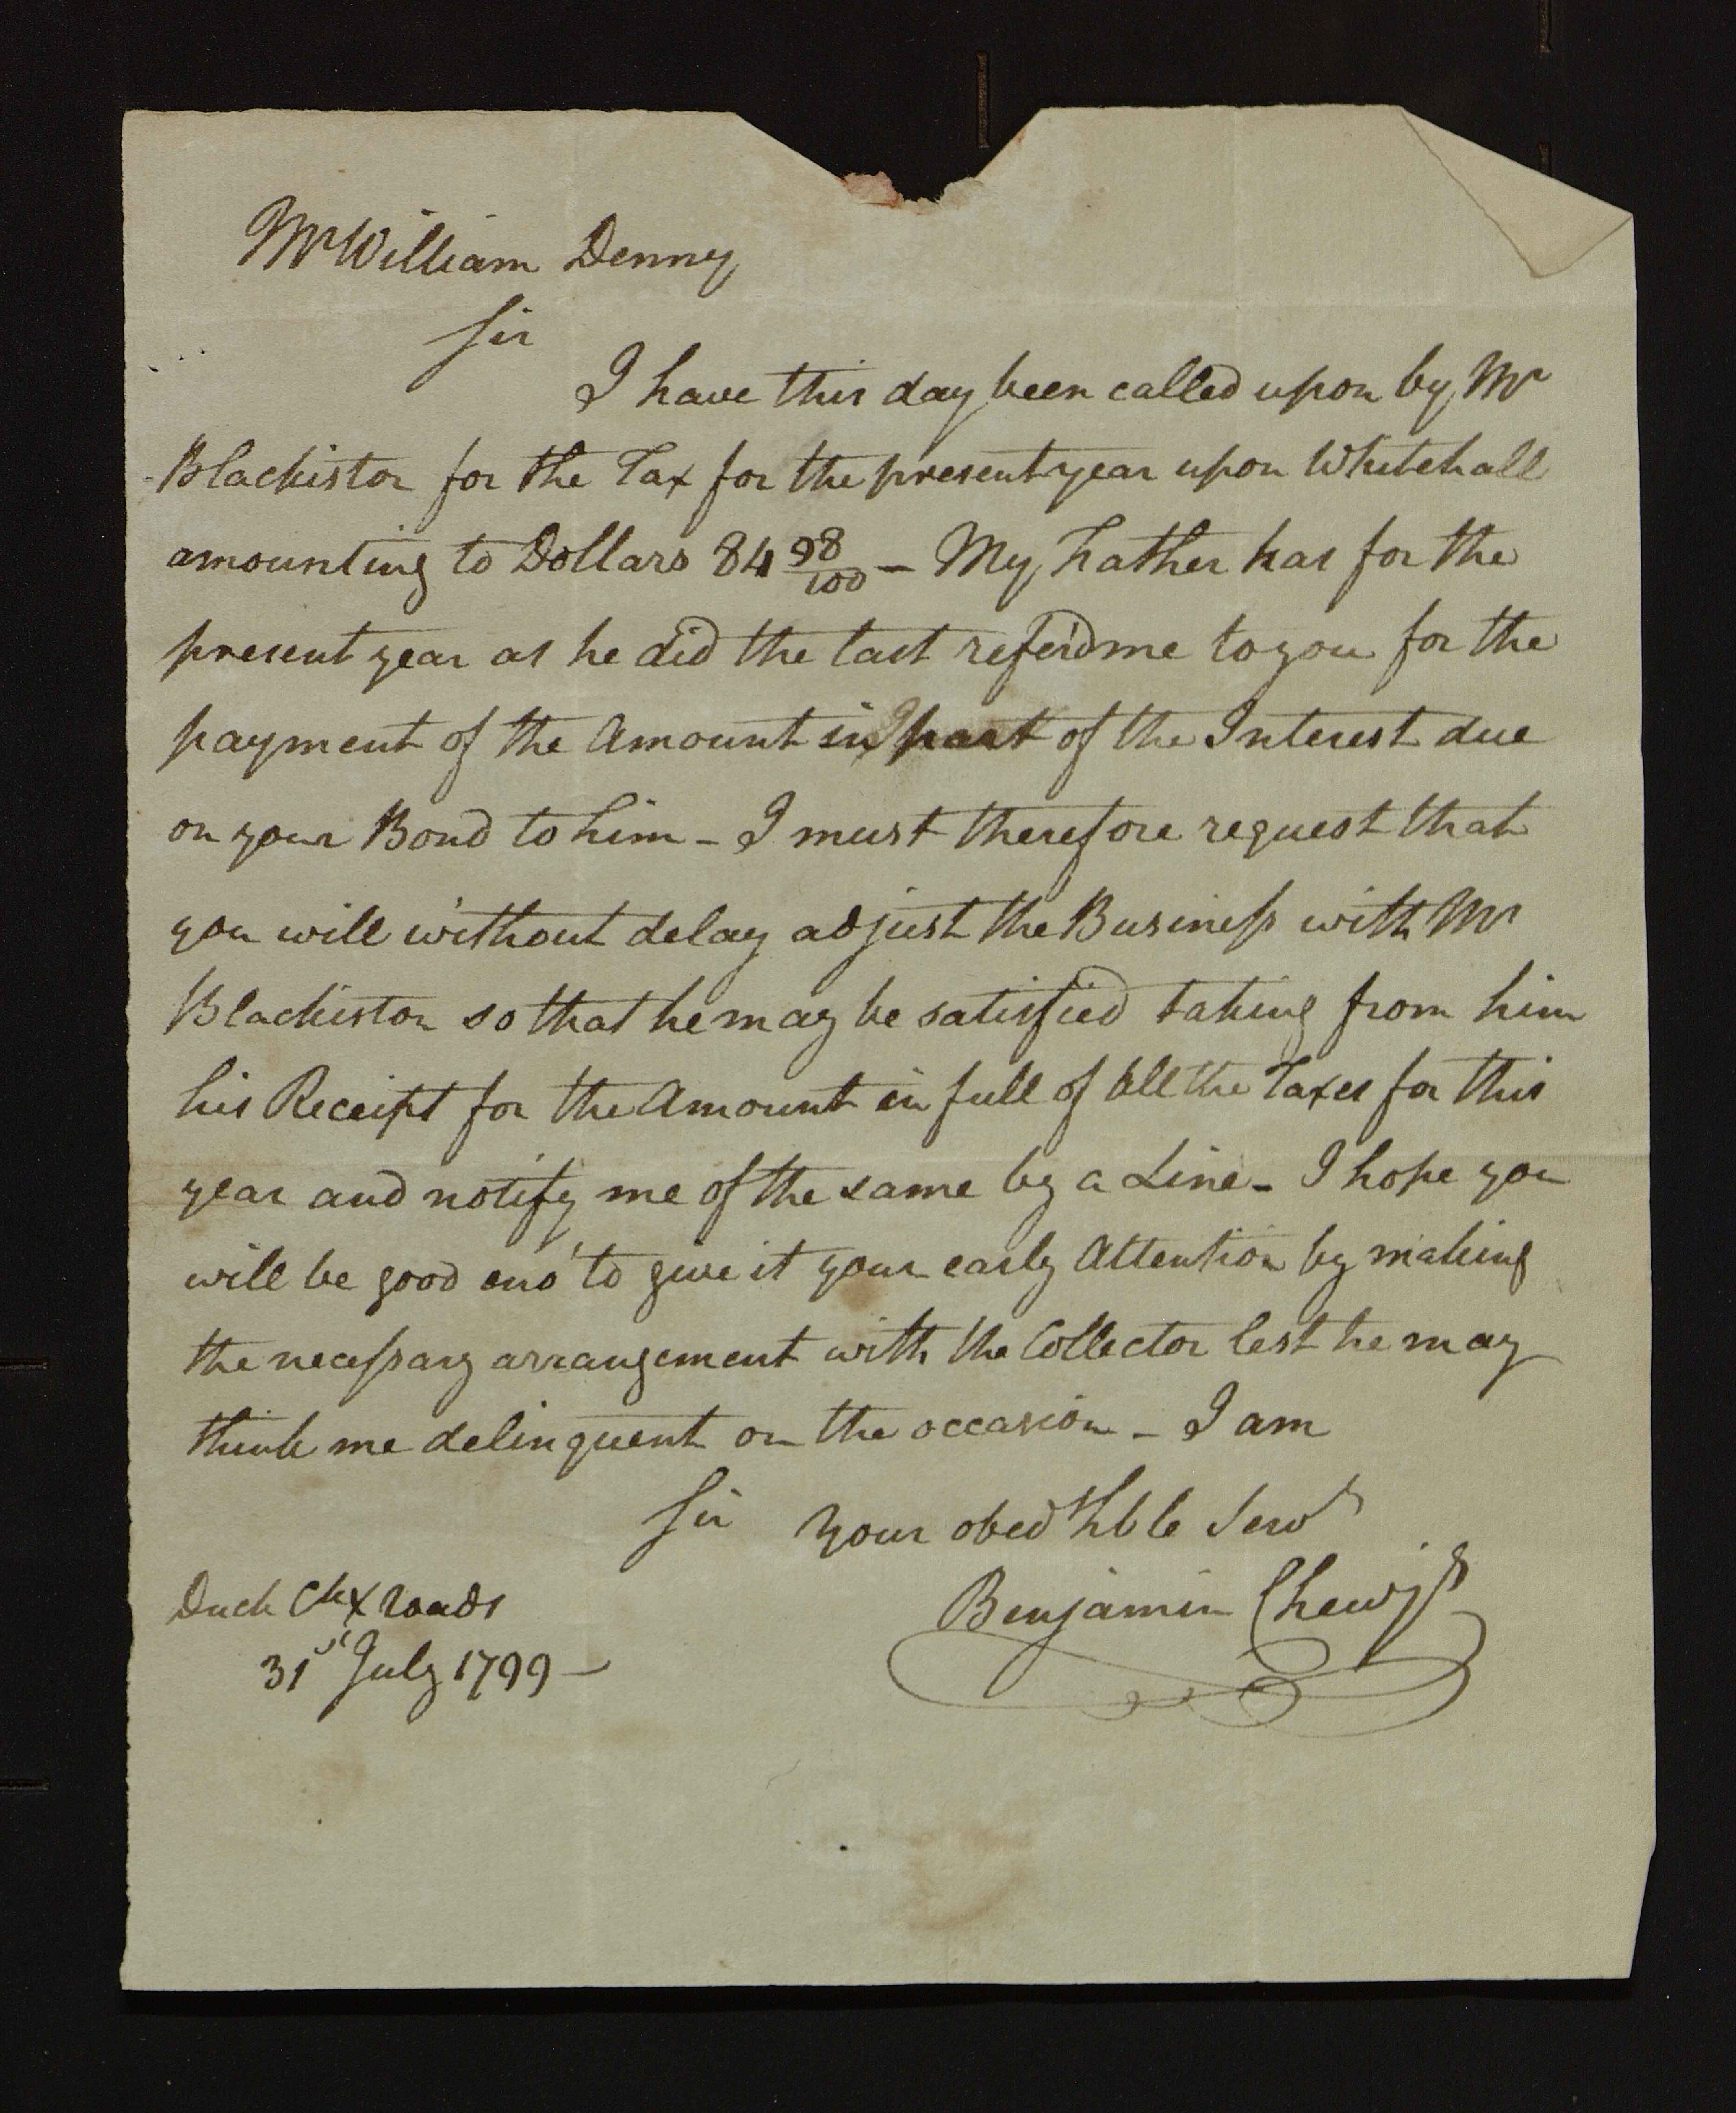 Mr William Denny
Sir
I have this day been called upon by Mr
Blackiston for the Tax for the present year upon Whitehall
amounting to Dollars 84 98/100 - My Father has for the
present year as he did the last refer'd me to you for the
payment of the Amount in part of the Interest due
on your Bond to him - I must therefore request that
you will without delay adjust the Business with Mr
Blackiston so that he may be satisfied taking from him
his Receipt for the Amount in full of all the Taxes for this
year and notify me of the same by a Line - I hope you
will be good eno' to give it your early Attention by making
the necessary arrangement with the Collector lest he may
think me delinquent on the occasion - I am
Sir your obed Hble Servt
Benjamin Chew jr
Duck Ck X roads
31st July 1799 -